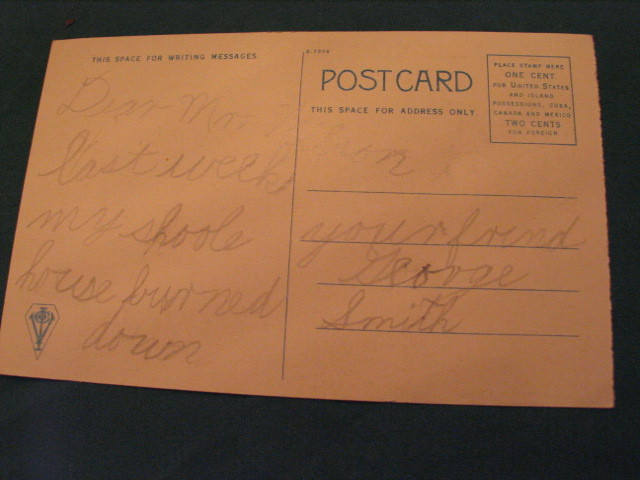 THIS SPACE FOR WRITING MESSAGES
Dear Mr
last week
my shoole
house burned
down
POST CARD
THIS SPACE FOR ADDRESS ONLY
your frend
George
Smith
PLACE STAMP HERE
ONE CENT
FOR UNITED STATES
AND ISLAND
POSSESSIONS, CUBA,
CANADA AND MEXICO
TWO CENTS
FOR FOREIGN